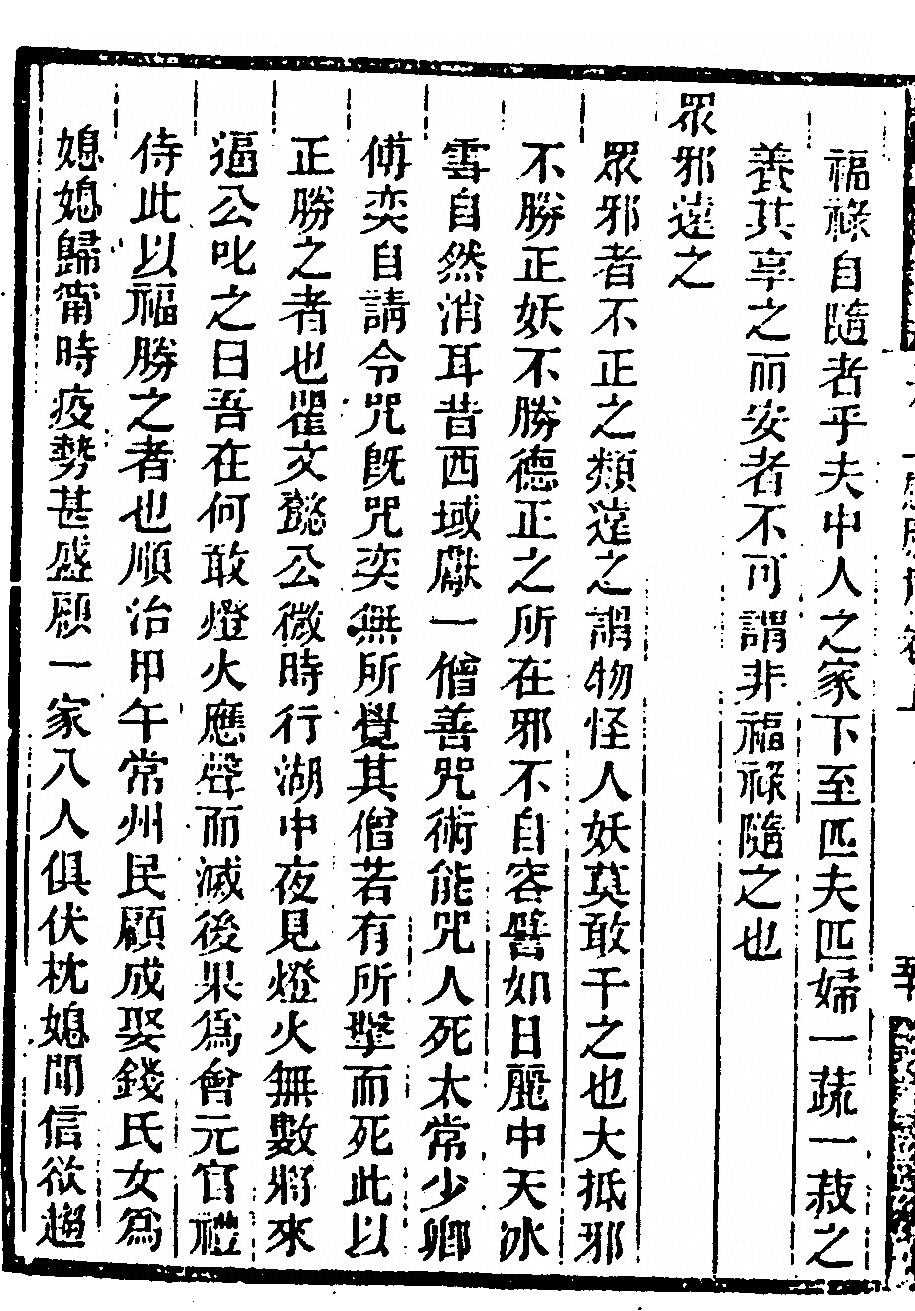 福祿自隨者乎夫中人之家下至匹夫匹婦一蔬一菽之
養其享之而安者不可謂非福祿隨之也
眾邪遠之
眾邪者不正之類遠之謂物怪人妖莫敢干之也大抵邪
不勝正妖不勝德正之所在邪不自容譬如日麗中天冰
雪自然消耳昔西域獻一僧善咒術能咒人死太常少卿
傅奕自請令咒旣咒奕無所覺其僧若有所擊而死此以
正勝之者也瞿文懿公微時行湖中夜見燈火無數將來
逼公叱之曰吾在何敢燈火應聲而滅後果爲會元官禮
侍此以福勝之者也順治甲午常州民顧成娶錢氏女爲
媳媳歸甯時疫勢甚盛顧一家八人俱伏枕媳聞信欲趨